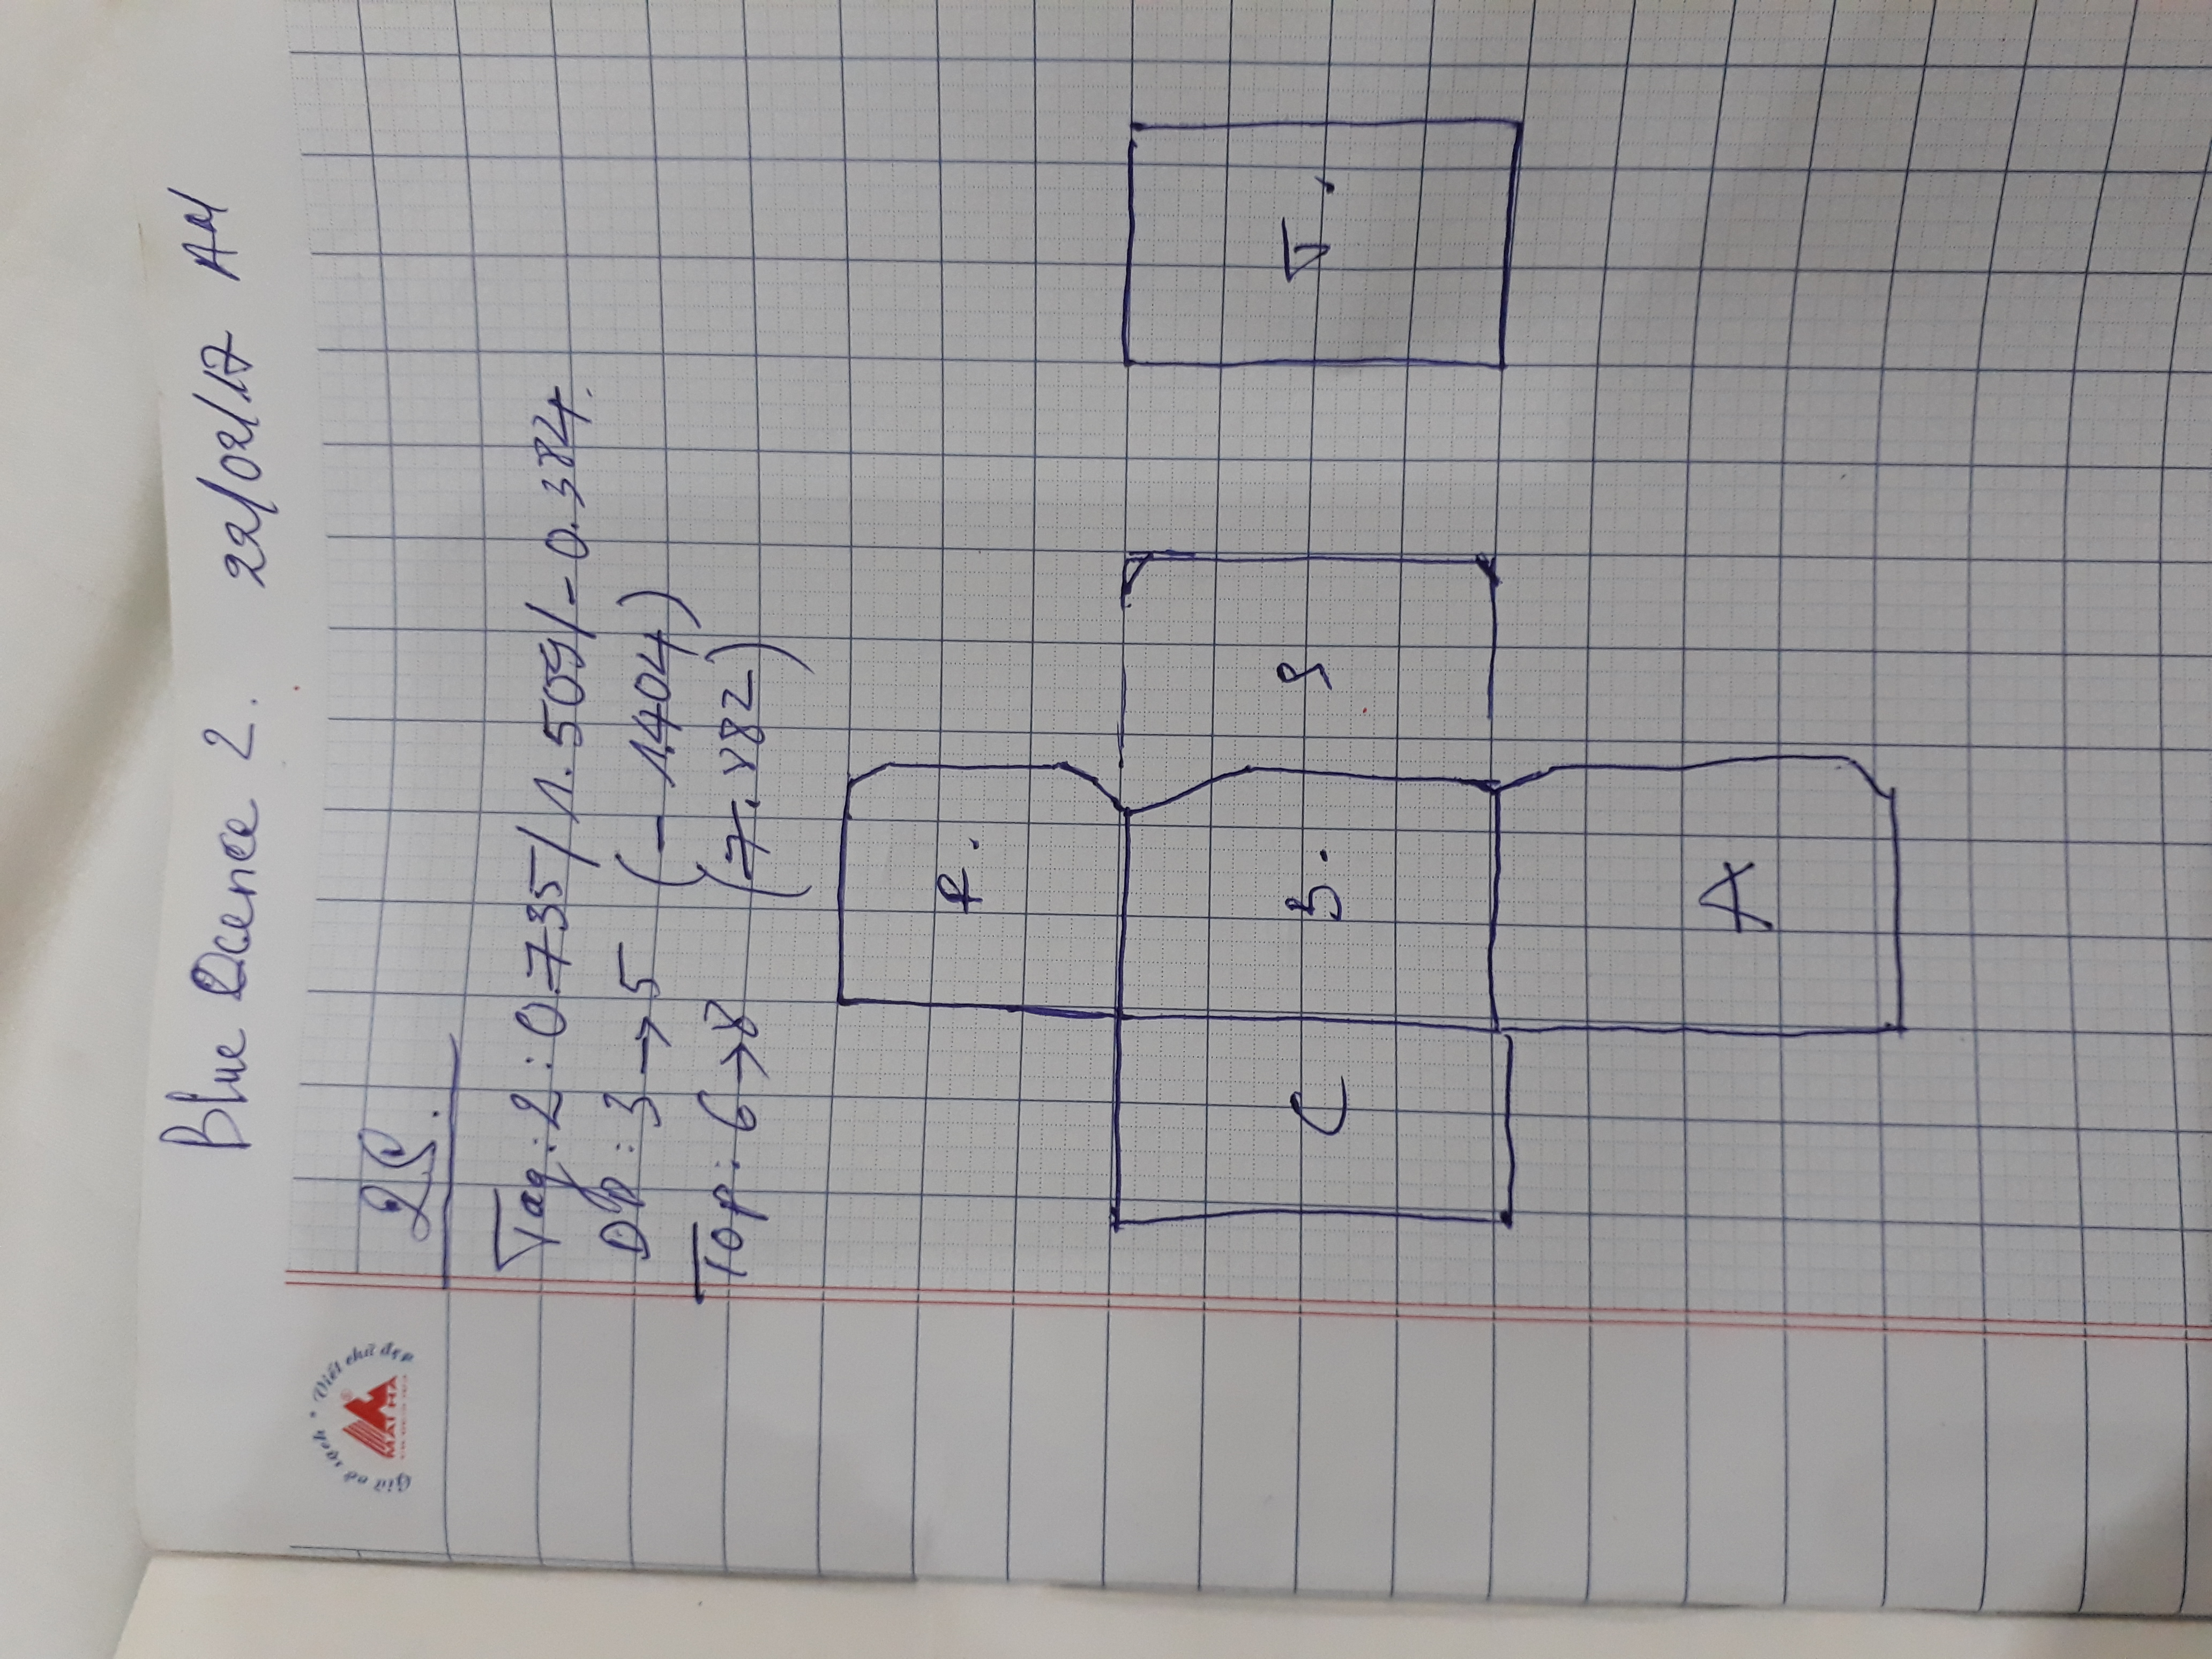 Blue Ocence 2. 22/02/17 AM
Giữ vở sạch * Viết chữ đẹp
MAI HA
2S.
Tag: 2: 0.735/1.509/-0.384.
DD: 3 → 5 (- 1.404)
Top: 6 → 8 (7.882)
F.
C B. S T.
A